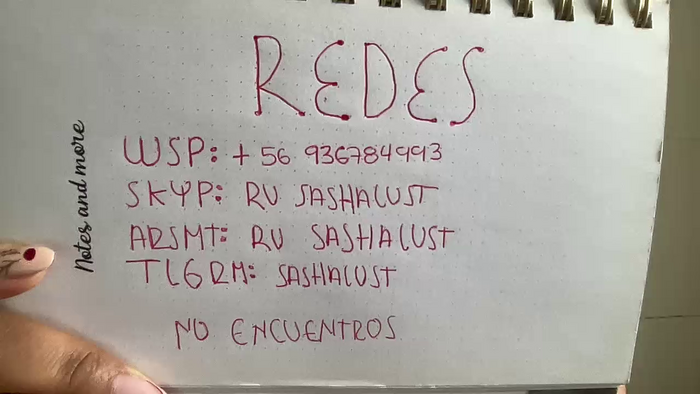 REDES
WSP: +56 936784993
SKYP: RV SASHALUST
ARSMT: RV SASHALUST
TLGRM: SASHALUST
NO ENCUENTROS
Notes and more